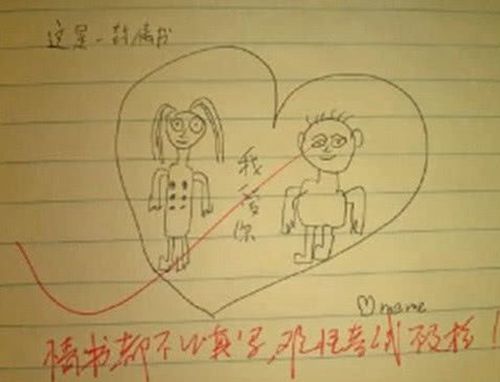 这是一封情书
我爱你
情书都不认真写,难怪考试不及格!